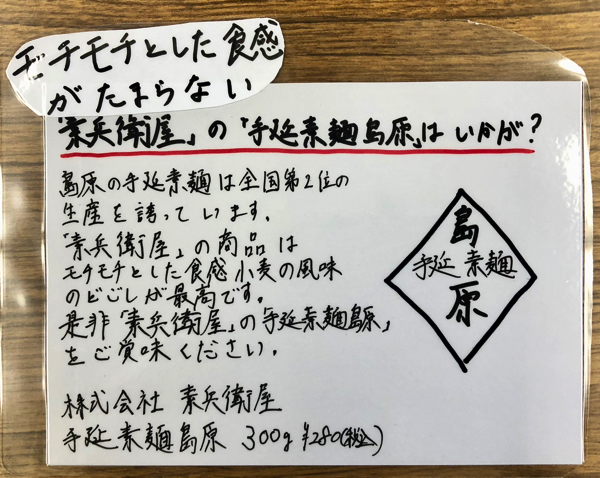 モチモチとした食感
がたまらない
「素兵衛屋」の「手延素麺島原」はいかが？
島原の手延素麺は全国第2位の
生産を誇っています。
「素兵衛屋」の商品は
モチモチとした食感小麦の風味
のどごしが最高です。
是非「素兵衛屋」の「手延素麺島原」
をご賞味ください。
島
手延素麺
原
株式会社 素兵衛屋
手延素麺島原 300g ¥280(税込)